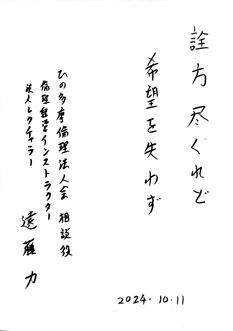 詮方尽くれど
希望を失わず
ひの多摩倫理法人会 相談役
倫理経営インストラクター
法人レクチャラー
遠藤 力
2024.10.11